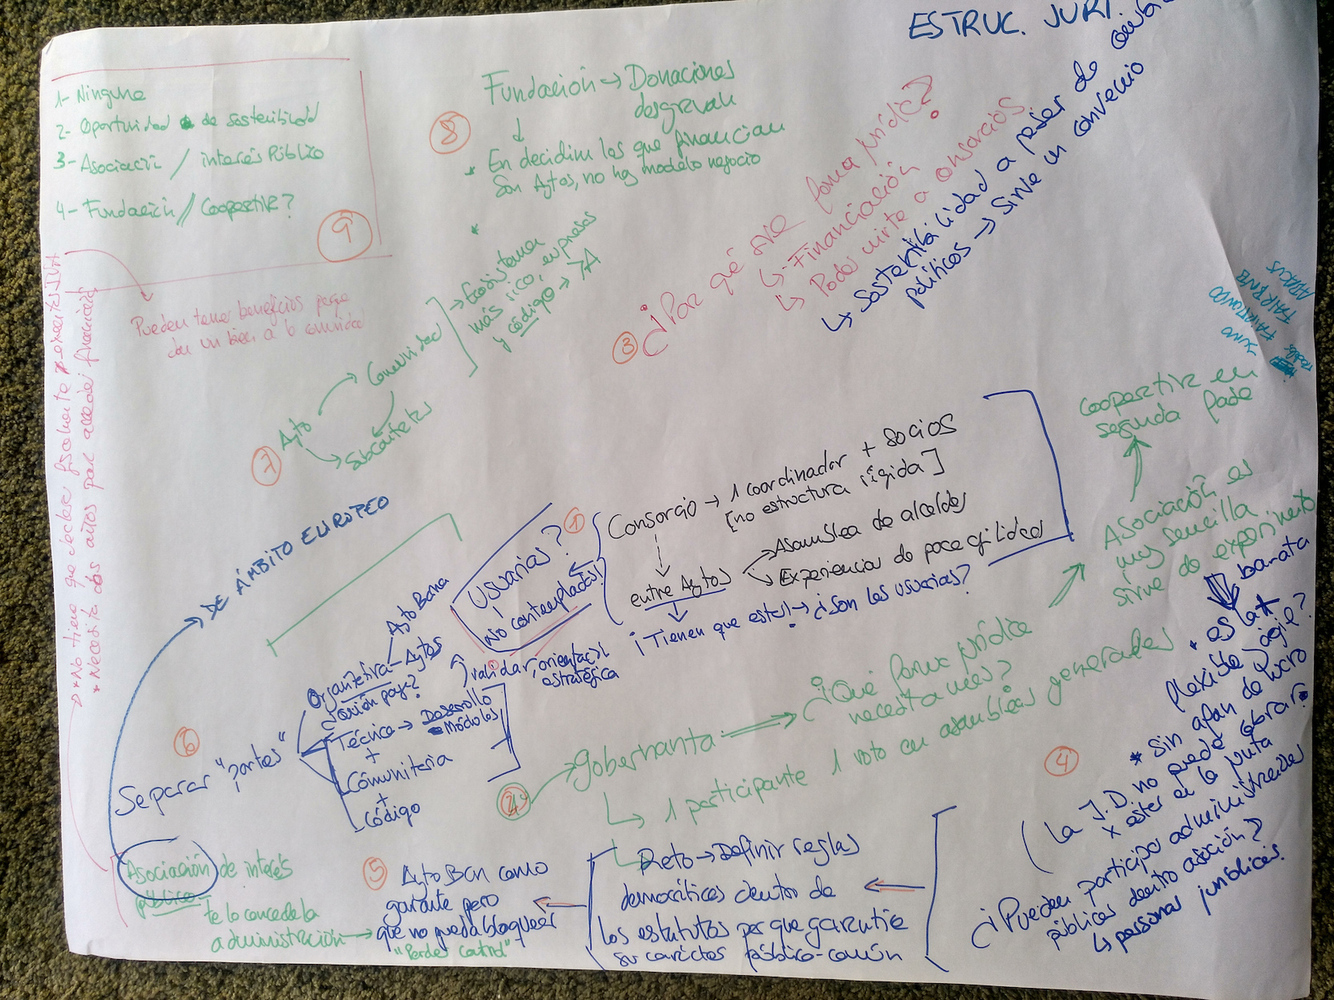 ESTRUC. JURI.
1- Ninguna
2- Oportunidad de sostenibilidad
3- Asociación / interés Público
4- Fundación // Cooperativa?
9
Pueden tener beneficios porque
dan un bien a la comunidad
* No tiene que declarar fiscalmente
* Necesita dos años para acceder financiación
8
Fundación → Donaciones
desgravan
↓
* En decidim los que financian
son Aytos, no hay modelo negocio
*
7
Ayto
Comunidad
Subcontetas
→ Ecosistema
más rico, empresas
y código → 7A
3
¿Por qué esa forma jurídica?
↳ Financiación
↳ Poder unirte a consorcios
↳ Sostenibilidad a pesar de cambios
políticos → Sirve un convenio
1
Consorcio → 1 coordinador + socios
[no estructura rígida]
entre Aytos
→ Asamblea de alcaldes
→ Experiencias de poca agilidad
¡Tienen que estar! → ¿Son las usuarias?
Usuarias?
No contempladas!
validar, orientación
estratégica
DE ÁMBITO EUROPEO
6
Separar "partes"
Organizativa - Aytos
Ayto Barna
¿Quién paga?
Técnica → Desarrollo
Módulos
+
Comunitaria
+
Código
2
Gobernanza
¿Qué forma jurídica
necesitamos?
↳ 1 participante 1 voto en asambleas generales
Asociación es
muy sencilla
sirve de experimento
Cooperativa en
segunda fase
barata
* es la +
flexible y ágil?
* Sin afán de lucro
4
(La J.D. no puede cobrar?
x estar en la junta
¿Pueden participar administraciones
públicas dentro asociación?
↳ personas jurídicas.
Reto → Definir reglas
democráticas dentro de
los estatutos para que garantice
su carácter público-común
5
Ayto BCN como
garante pero
que no pueda bloquear
"Perder control"
Asociación de interés
público
te lo concede la
administración →